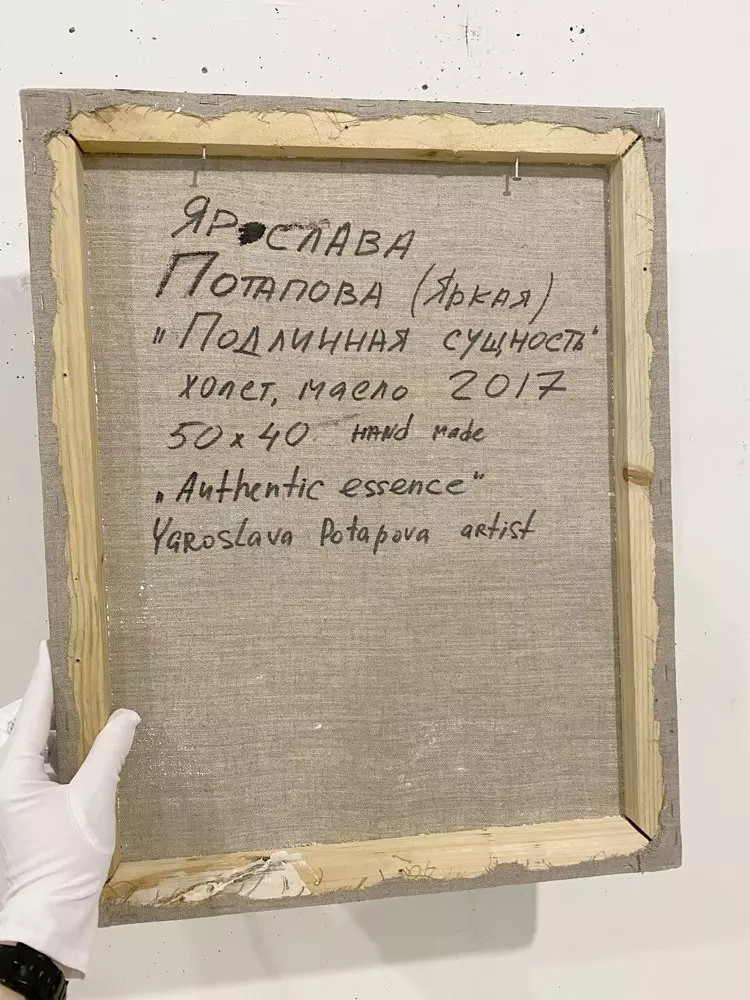 ЯРОСЛАВА
ПОТАПОВА (ЯРКАЯ)
"ПОДЛИННАЯ СУЩНОСТЬ"
холст, масло 2017
50 x 40 HAND made
„Authentic essence"
Yaroslava Potapova artist